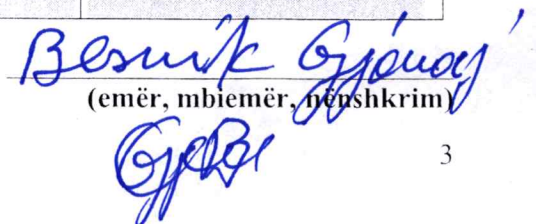 Besnik Gjonaj
(emër, mbiemër, nënshkrim)
3